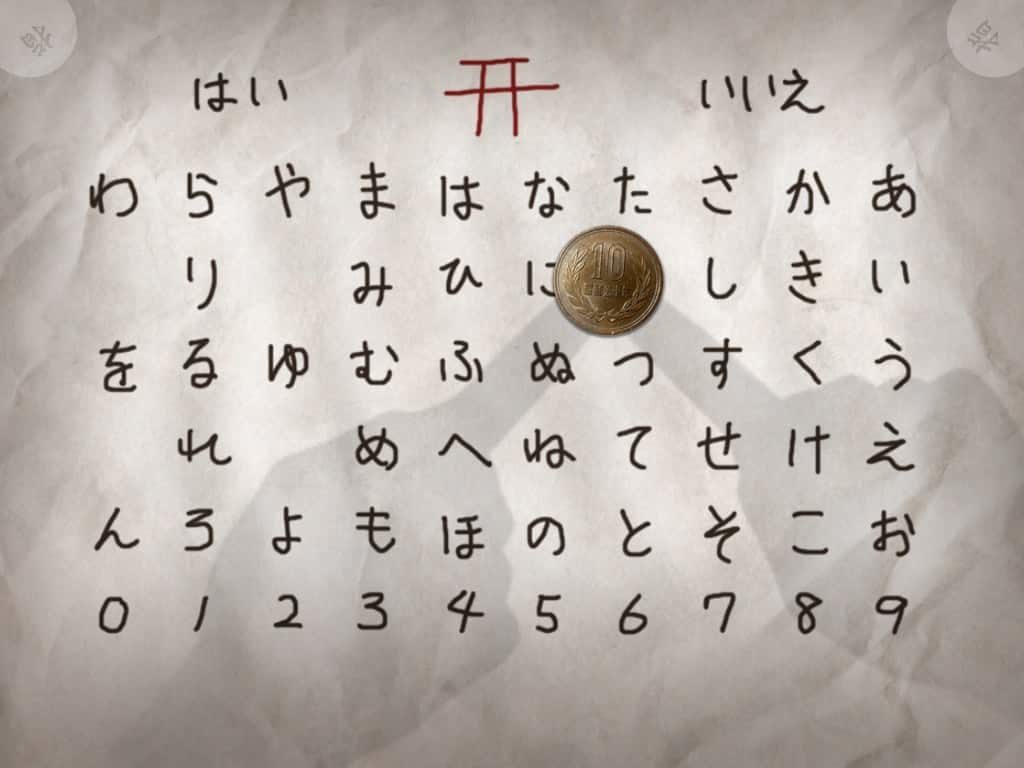 はい いいえ
わ ら や ま は な た さ か あ
り み ひ に 10 し き い
を る ゆ む ふ ぬ つ す く う
れ め へ ね て せ け え
ん ろ よ も ほ の と そ こ お
0 1 2 3 4 5 6 7 8 9